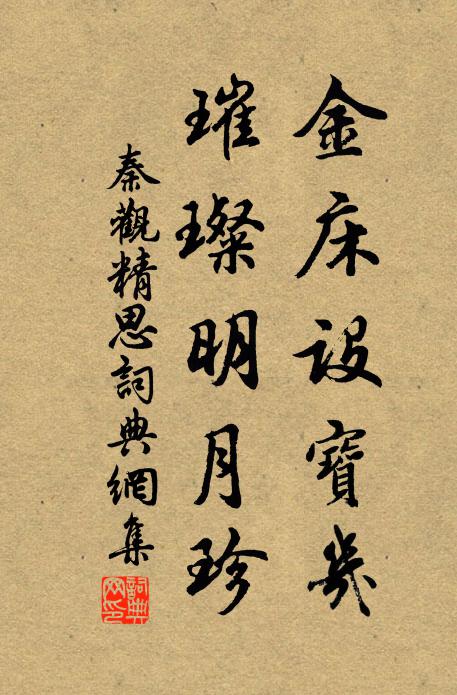 金床設寶幾
璀璨明月珍
秦觀精思詞典網集
詞典网印